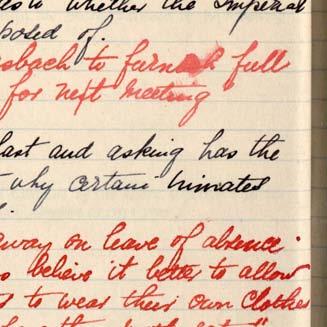 to whether the Imperial
posed of.
sbach to furnish full
for next meeting
last and asking has the
why certain inmates
away on leave of absence.
believe it better to allow
to wear their own Clothes